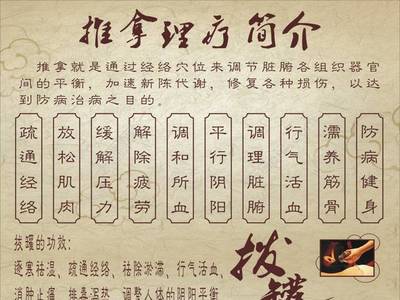 推拿理疗简介
推拿就是通过经络穴位来调节脏腑各组织器官
间的平衡，加速新陈代谢，修复各种损伤，以达
到防病治病之目的。
疏通经络
放松肌肉
缓解压力
解除疲劳
调和所血
平行阴阳
调理脏腑
行气活血
濡养筋骨
防病健身
拔罐
拔罐的功效：
逐寒祛湿、疏通经络、祛除淤滞、行气活血、
消肿止痛、排毒泻热，调整人体的阴阳平衡